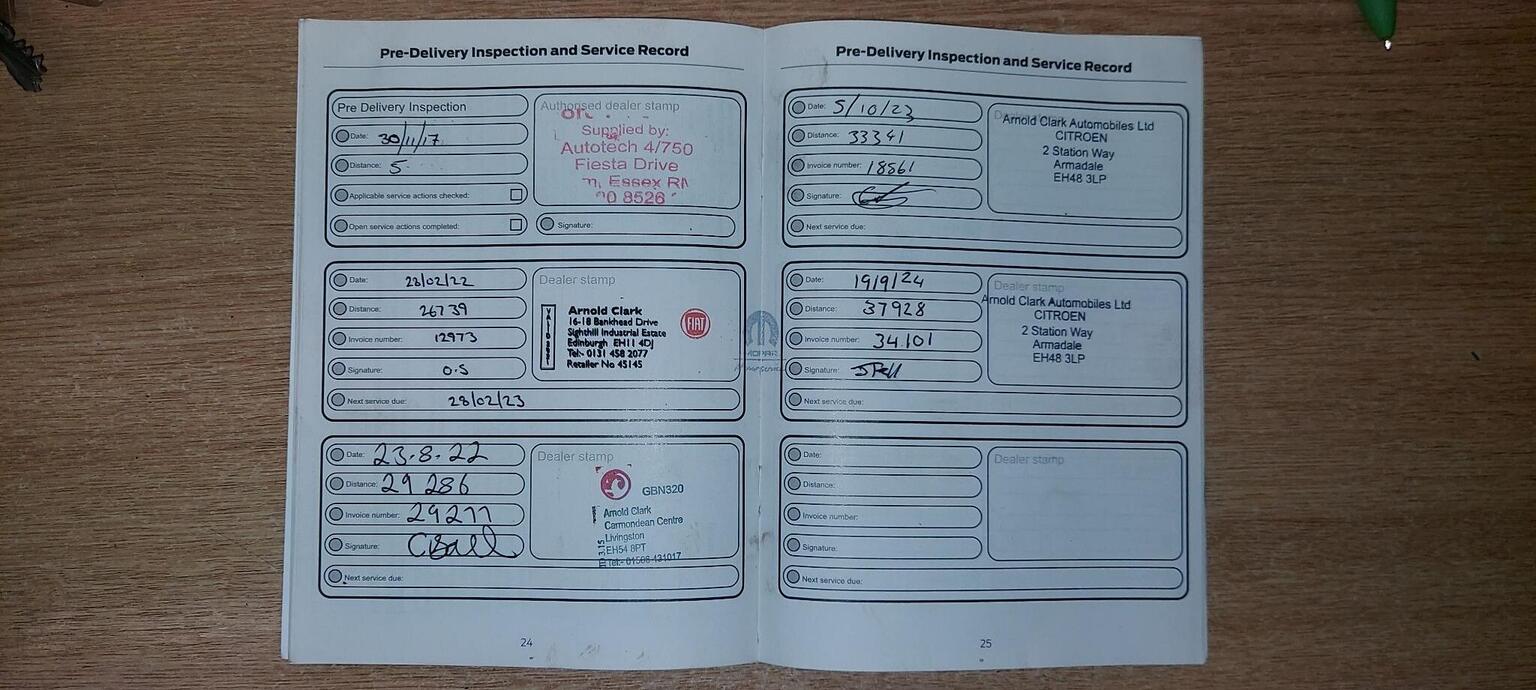 Pre-Delivery Inspection and Service Record
Pre Delivery Inspection
Date: 30/11/17
Distance: 5
Applicable service actions checked:
Open service actions completed:
Authorised dealer stamp
Supplied by:
Autotech 4/750
Fiesta Drive
Essex
8526
Signature:
Date: 28/02/22
Distance: 26739
Invoice number: 12973
Signature: O.S
Next service due: 28/02/23
Dealer stamp
Arnold Clark
16-18 Bankhead Drive
Sighthill Industrial Estate
Edinburgh EH11 4DJ
Tel:- 0131 458 2077
Retailer No 45145
FIAT
Date: 23.8.22
Distance: 29 286
Invoice number: 29277
Signature: CBall
Next service due:
Dealer stamp
GBN320
Arnold Clark
Carmondean Centre
Livingston
EH54 8PT
Tel:- 01506 431017
24
Pre-Delivery Inspection and Service Record
Date: 5/10/23
Distance: 33341
Invoice number: 18561
Signature:
Next service due:
Arnold Clark Automobiles Ltd
CITROEN
2 Station Way
Armadale
EH48 3LP
Date: 19/9/24
Distance: 37928
Invoice number: 34.101
Signature:
Next service due:
Dealer stamp
Arnold Clark Automobiles Ltd
CITROEN
2 Station Way
Armadale
EH48 3LP
Date:
Distance:
Invoice number:
Signature:
Next service due:
Dealer stamp
25